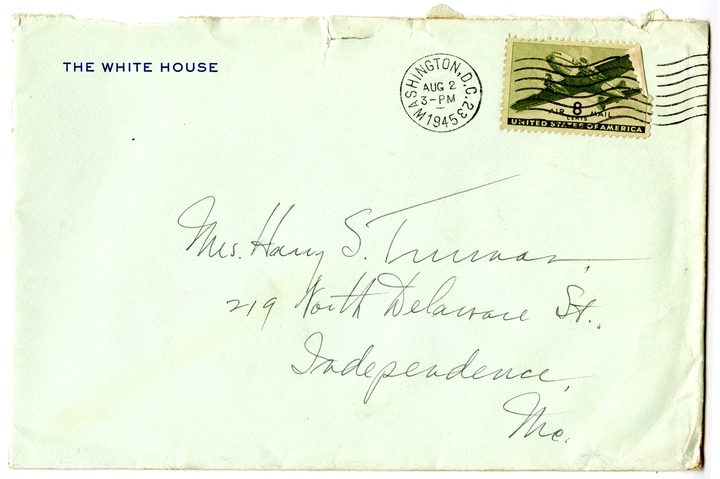 THE WHITE HOUSE
WASHINGTON, D.C. 23
AUG 2
3-PM
1945
8
CENTS
AIR MAIL
UNITED STATES OF AMERICA
Mrs. Harry S. Truman,
219 North Delaware St.,
Independence,
Mo.